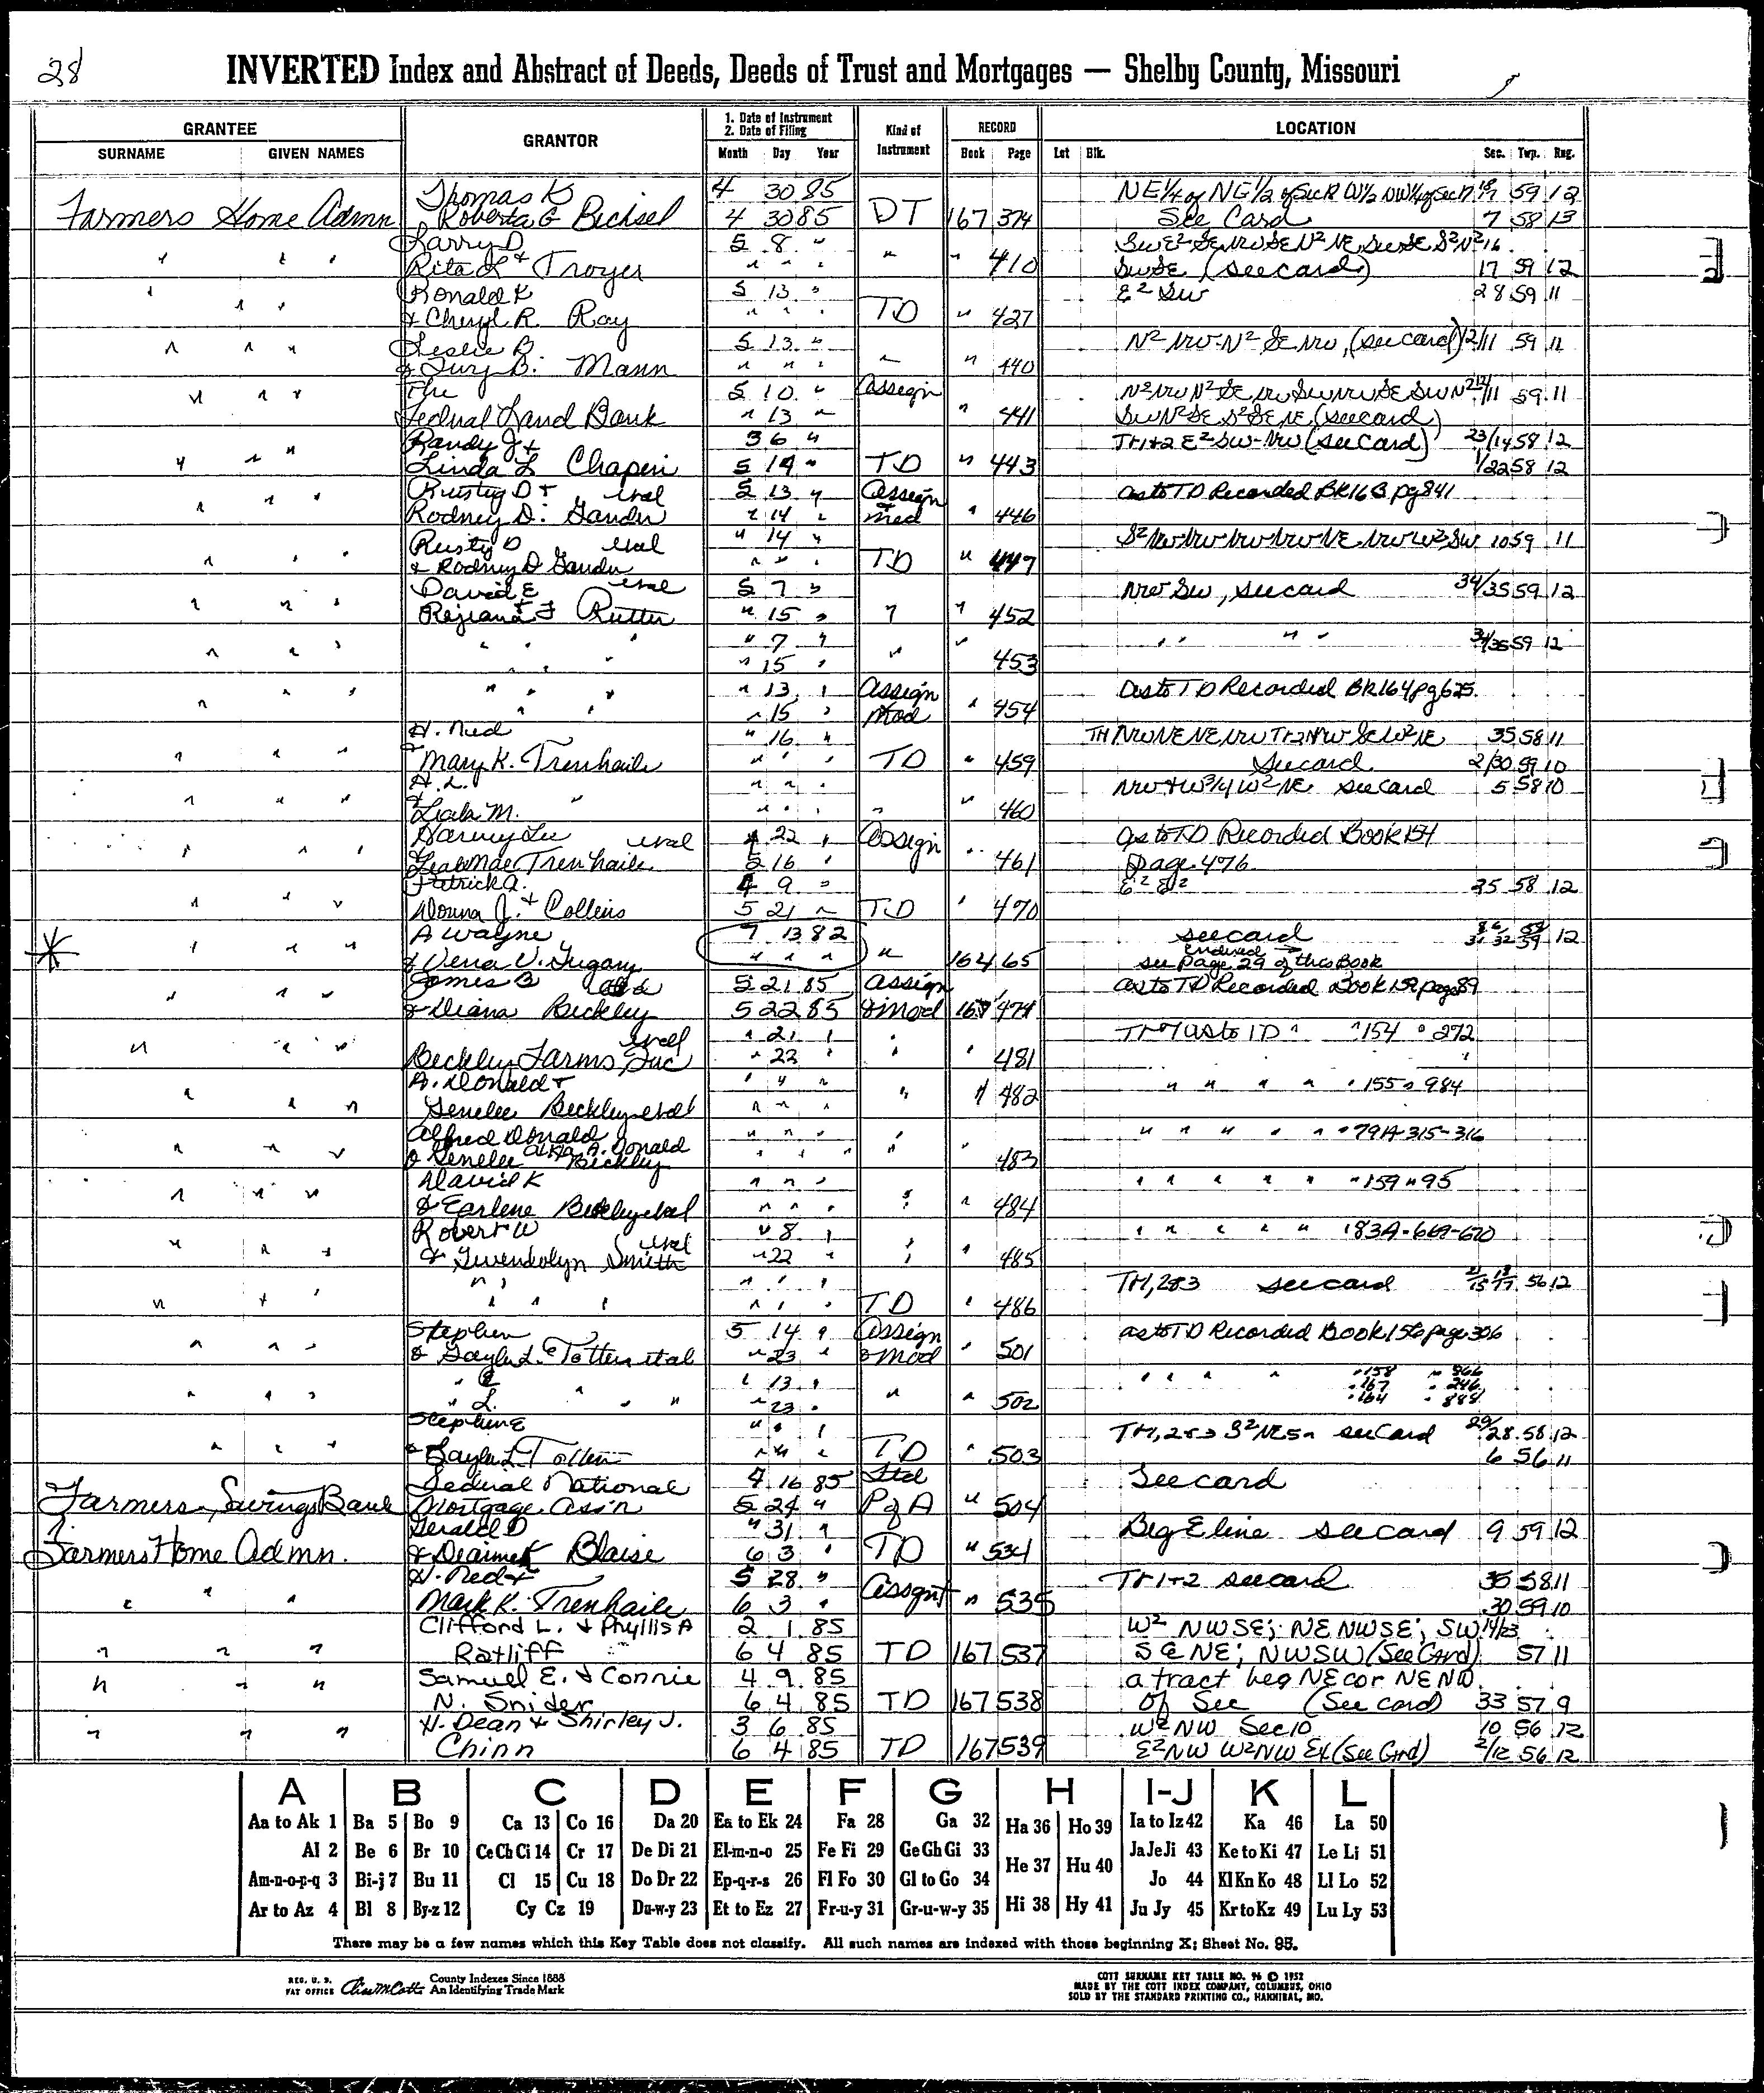 28
INVERTED Index and Abstract of Deeds, Deeds of Trust and Mortgages — Shelby County, Missouri
GRANTEE GRANTOR 1. Date of Instrument 2. Date of Filing Kind of Instrument RECORD LOCATION
SURNAME GIVEN NAMES Month Day Year Book Page Lot Blk. Sec. Twp. Rng.
Thomas K 4 30 85 NE 1/4 of NE 1/2 of Sec 12 W 1/2 NW 1/4 of Sec 7 59 12
Farmers Home Admn Roberta G Bechsel 4 30 85 DT 167 374 See Card 7 58 13
Larry D 5 8 "
" " " Rita L & Troyer " " " " " 410 SWSE (see card) 17 59 12
Ronald K 5 13 " E² SW 28 59 11
" " " & Cheryl R. Ray " " " TD " 427
Leslie B 5 13 " N² NW-N² SE NW, (see card) 12/11 59 11
" " " & Mann " " " " " 440
The 5 10 " Assign 59 11
" " " Federal Land Bank " 13 " " 441 SW N² SE S² SE NE (see card)
Randy J & 3 6 " Tr 1+2 E² SW-NW (see card) 23/14 58 12
" " " Linda L Chapin 5 14 " TD " 443 1/22 58 12
Rusty D & etal 5 13 " Assign as to TD Recorded BK 163 pg 841
" " " Rodney D. Gander " 14 " Mod " 446
Rusty D etal " 14 " 10 59 11
" " " & Rodney D Gander " " " TD " 447
David E etal 5 7 " NW SW, see card 34/35 59 12
" " " Rejeana F Rutter " 15 " " " 452
" " " " 7 " " " " 34/35 59 12
" " " " " " " 15 " " " 453
" " " " 13 " Assign as to TD Recorded BK 164 pg 625
" " " " " " " 15 " Mod " 454
H. Ned " 16 " 35 58 11
" " " & Mary K. Trenhaile " " " TD " 459 see card 2/30 59 10
H. L. " " " " see card 5 58 10
" " " & Leah M. " " " " " 460
Harvey Lee etal 4 22 " Assign as to TD Recorded Book 154
" " " Leah Mae Trenhaile 5 16 " " 461 page 476
Patrick A. 4 9 " E² E² 35 58 12
" " " Donna J. & Collins 5 21 " TD " 470
A Wayne 7 13 82 see card 12
* " " " & Vena V. " " " " 164 65 see page 29 of this Book
James B 5 21 85 Assign as to TD Recorded Book 159 page 89
" " " & Diana Beckley 5 22 85 & Mod 167 474
etal " 21 " as to TD " " 154 " 272
" " " Beckley Farms, Inc " 22 " " " 481
A. Donald & " " " " " " " " 155 " 984
" " " Genelee Beckley etal " " " " " 482
Alfred Donald " " " " " " " " " 79A-315-316
" " " & Genelee aka A. Donald Beckley " " " " " 483
David K " " " " " " " " " 159 " 95
" " " & Earlene Beckley etal " " " " " 484
Robert W " 8 " " " " " " 83A-669-670
" " " & Gwendolyn Smith etal " 22 " " " 485
" " " " " Tr 1, 2&3 see card 56 12
" " " " " " " " " TD " 486
Stephen 5 14 " Assign as to TD Recorded Book 156 page 306
" " " & Gayle L. Totten etal " 23 " & Mod " 501
" E " 13 " " " " " " 158 " 866
" 167 " 246
" " " " L. " " " 23 " " " 502 " 164 " 888
Stephen E " " " Tr 1, 2&3 S² NE see card 29/28 58 12
" " " & Gayle L Totten " " " TD " 503 6 56 11
Federal National 4 16 85 Ltd See card
Farmers Savings Bank Mortgage Ass'n 5 24 " P of A " 504
Gerald D " 31 " Beg E line see card 9 59 12
Farmers Home Admn. & Blaise 6 3 " TD " 534
H. Ned & 5 28 " Assgnt Tr 1+2 see card 35 58 11
" " " Mark K. Trenhaile 6 3 " " 535 30 59 10
Clifford L. & Phyllis A 2 1 85 W² NWSE; NE NWSE; SW 14/23
" " " Ratliff 6 4 85 TD 167 537 SE NE; NWSW (See Card) 57 11
Samuel E. & Connie 4 9 85 a tract beg NE cor NE NW
" " " N. Snider 6 4 85 TD 167 538 of Sec (See card) 33 57 9
H. Dean & Shirley J. 3 6 85 W² NW Sec 10 10 56 12
" " " Chinn 6 4 85 TD 167 539 E² NW W² NW Ex (See Crd) 2/12 56 12
A B C D E F G H I-J K L
Aa to Ak 1 Ba 5 Bo 9 Ca 13 Co 16 Da 20 Ea to Ek 24 Fa 28 Ga 32 Ha 36 Ho 39 Ia to Iz 42 Ka 46 La 50
Al 2 Be 6 Br 10 Ce Ch Ci 14 Cr 17 De Di 21 El-m-n-o 25 Fe Fi 29 Ge Gh Gi 33 He 37 Hu 40 Ja Je Ji 43 Ke to Ki 47 Le Li 51
Am-n-o-p-q 3 Bi-j 7 Bu 11 Cl 15 Cu 18 Do Dr 22 Ep-q-r-s 26 Fl Fo 30 Gl to Go 34 Jo 44 Kl Kn Ko 48 Ll Lo 52
Ar to Az 4 Bl 8 By-z 12 Cy Cz 19 Du-w-y 23 Et to Ez 27 Fr-u-y 31 Gr-u-w-y 35 Hi 38 Hy 41 Ju Jy 45 Kr to Kz 49 Lu Ly 53
There may be a few names which this Key Table does not classify. All such names are indexed with those beginning X; Sheet No. 95.
REG. U. S. PAT OFFICE County Indexes Since 1888 An Identifying Trade Mark
COTT SURNAME KEY TABLE NO. 96 © 1952
MADE BY THE COTT INDEX COMPANY, COLUMBUS, OHIO
SOLD BY THE STANDARD PRINTING CO., HANNIBAL, MO.